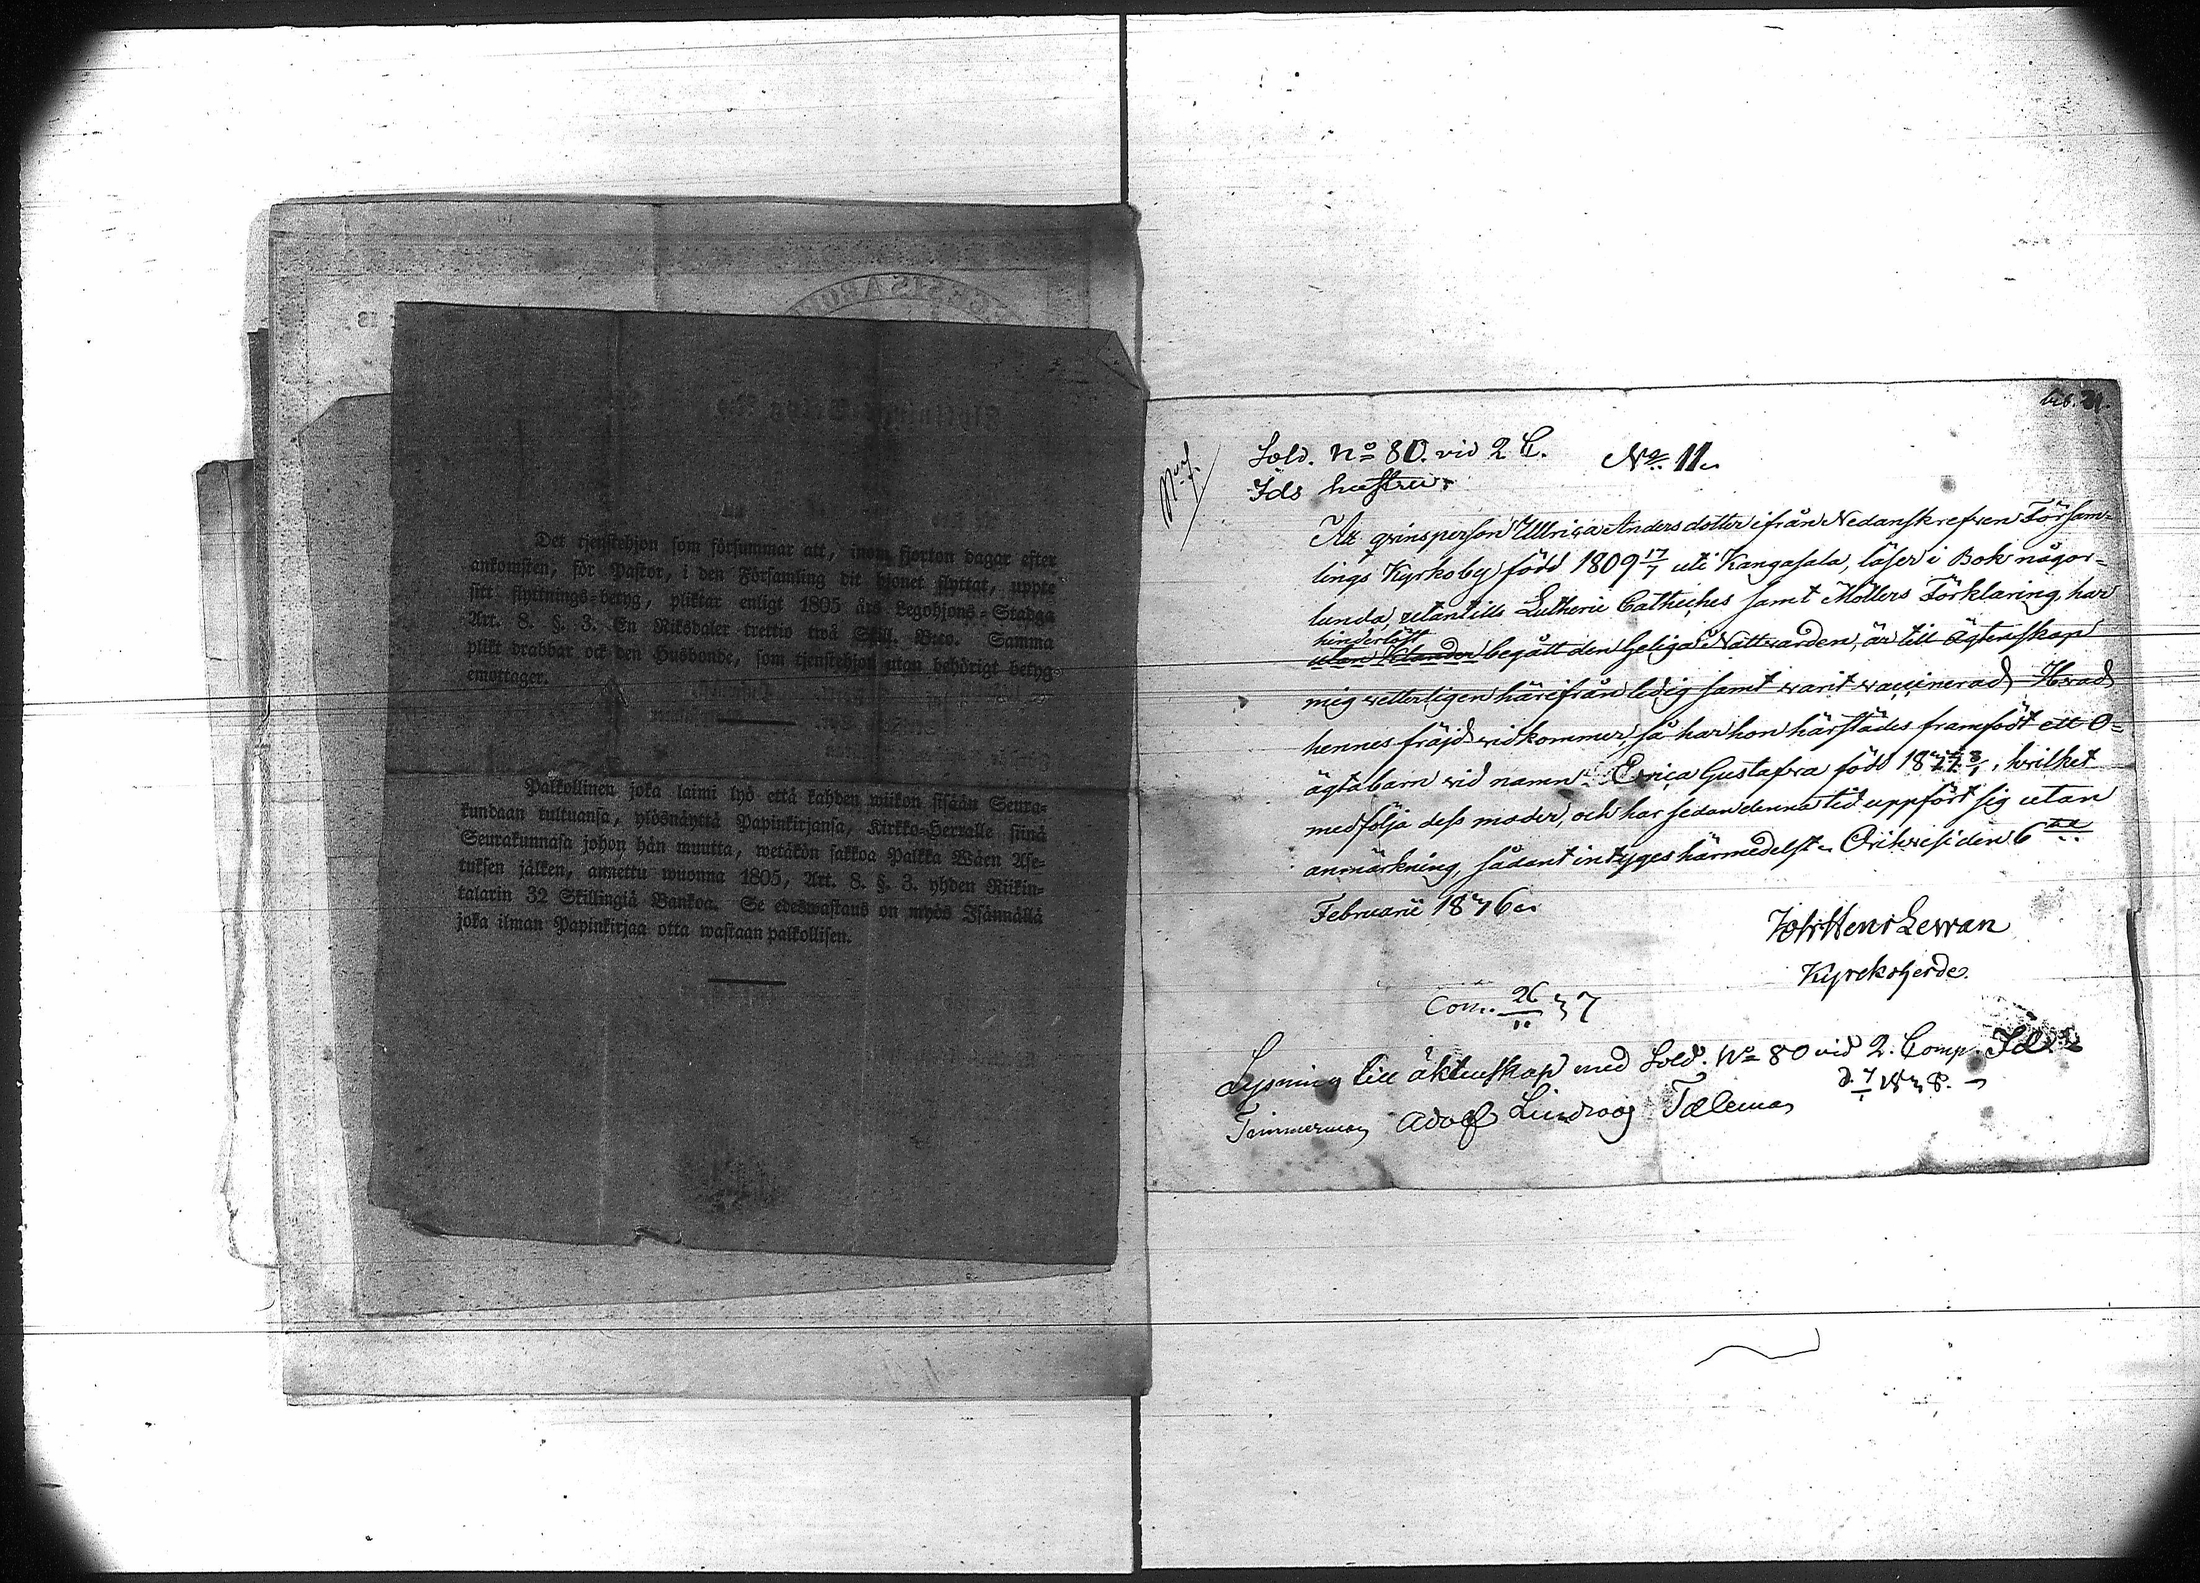 Det tjenstehjon som försummar att, inom fjorton dagar efter
ankomsten, för Pastor, i den Församling dit hjonet flyttat, uppte
sitt flyttnings-betyg, pliktar enligt 1805 års Legohjons-Stadga
Art. 8. §. 3. En Riksdaler trettio twå Skill. Bco. Samma
plikt drabbar ock den Husbonde, som tjenstehjon utan behörigt betyg
emottager.
Palkollinen joka laimi lyö että kahden wiikon sisään Seura-
kundaan tultuansa, ylösnäyttä Papinkirjansa, Kirkko-Herralle siinä
Seurakunnasa johon hän muutta, wetäkön sakkoa Palkka Wäen Ase-
tuksen jälken, annettu wuonna 1805, Art. 8. §. 3. yhden Riikin-
talarin 32 Skillingiä Bankoa. Se edeswastaus on myös Isännällä
joka ilman Papinkirjaa otta wastaan palkollisen.
Sold. No 80. vid 2 C. No. 11.
Ids hustru.
qvinsperson Ullrica Andersdotter ifrån Nedanskrefven Försam-
lings Kyrkoby född 1809 17/7 uti Kangasala, läser i Bok någor-
lunda, utantills Lutherie Catheches samt Möllers Förklaring, har
hinderlöst
begått den heliga Nattvarden, är till ägtenskap
mig vetterligen härifrån ledig samt varit vaccinerad. Hvad
hennes fräjd vidkommer, så har hon härstädes framfödt ett O-
ägta barn vid namn Erica Gustafva född 18 , hvilket
medfölja dess moder, och har sedan denna tid uppfört sig utan
anmärkning, sådant intyges härmedelst. Orihvesi den 6
Februarii 1836.
Joh Henr Levan
Kyrckoherde.
Com. 26/11 37
Lysning till äktenskap med Sold. No 80 vid 2. Comp.
d. 7/1 1838.
Timmerman Adolf Lindroos